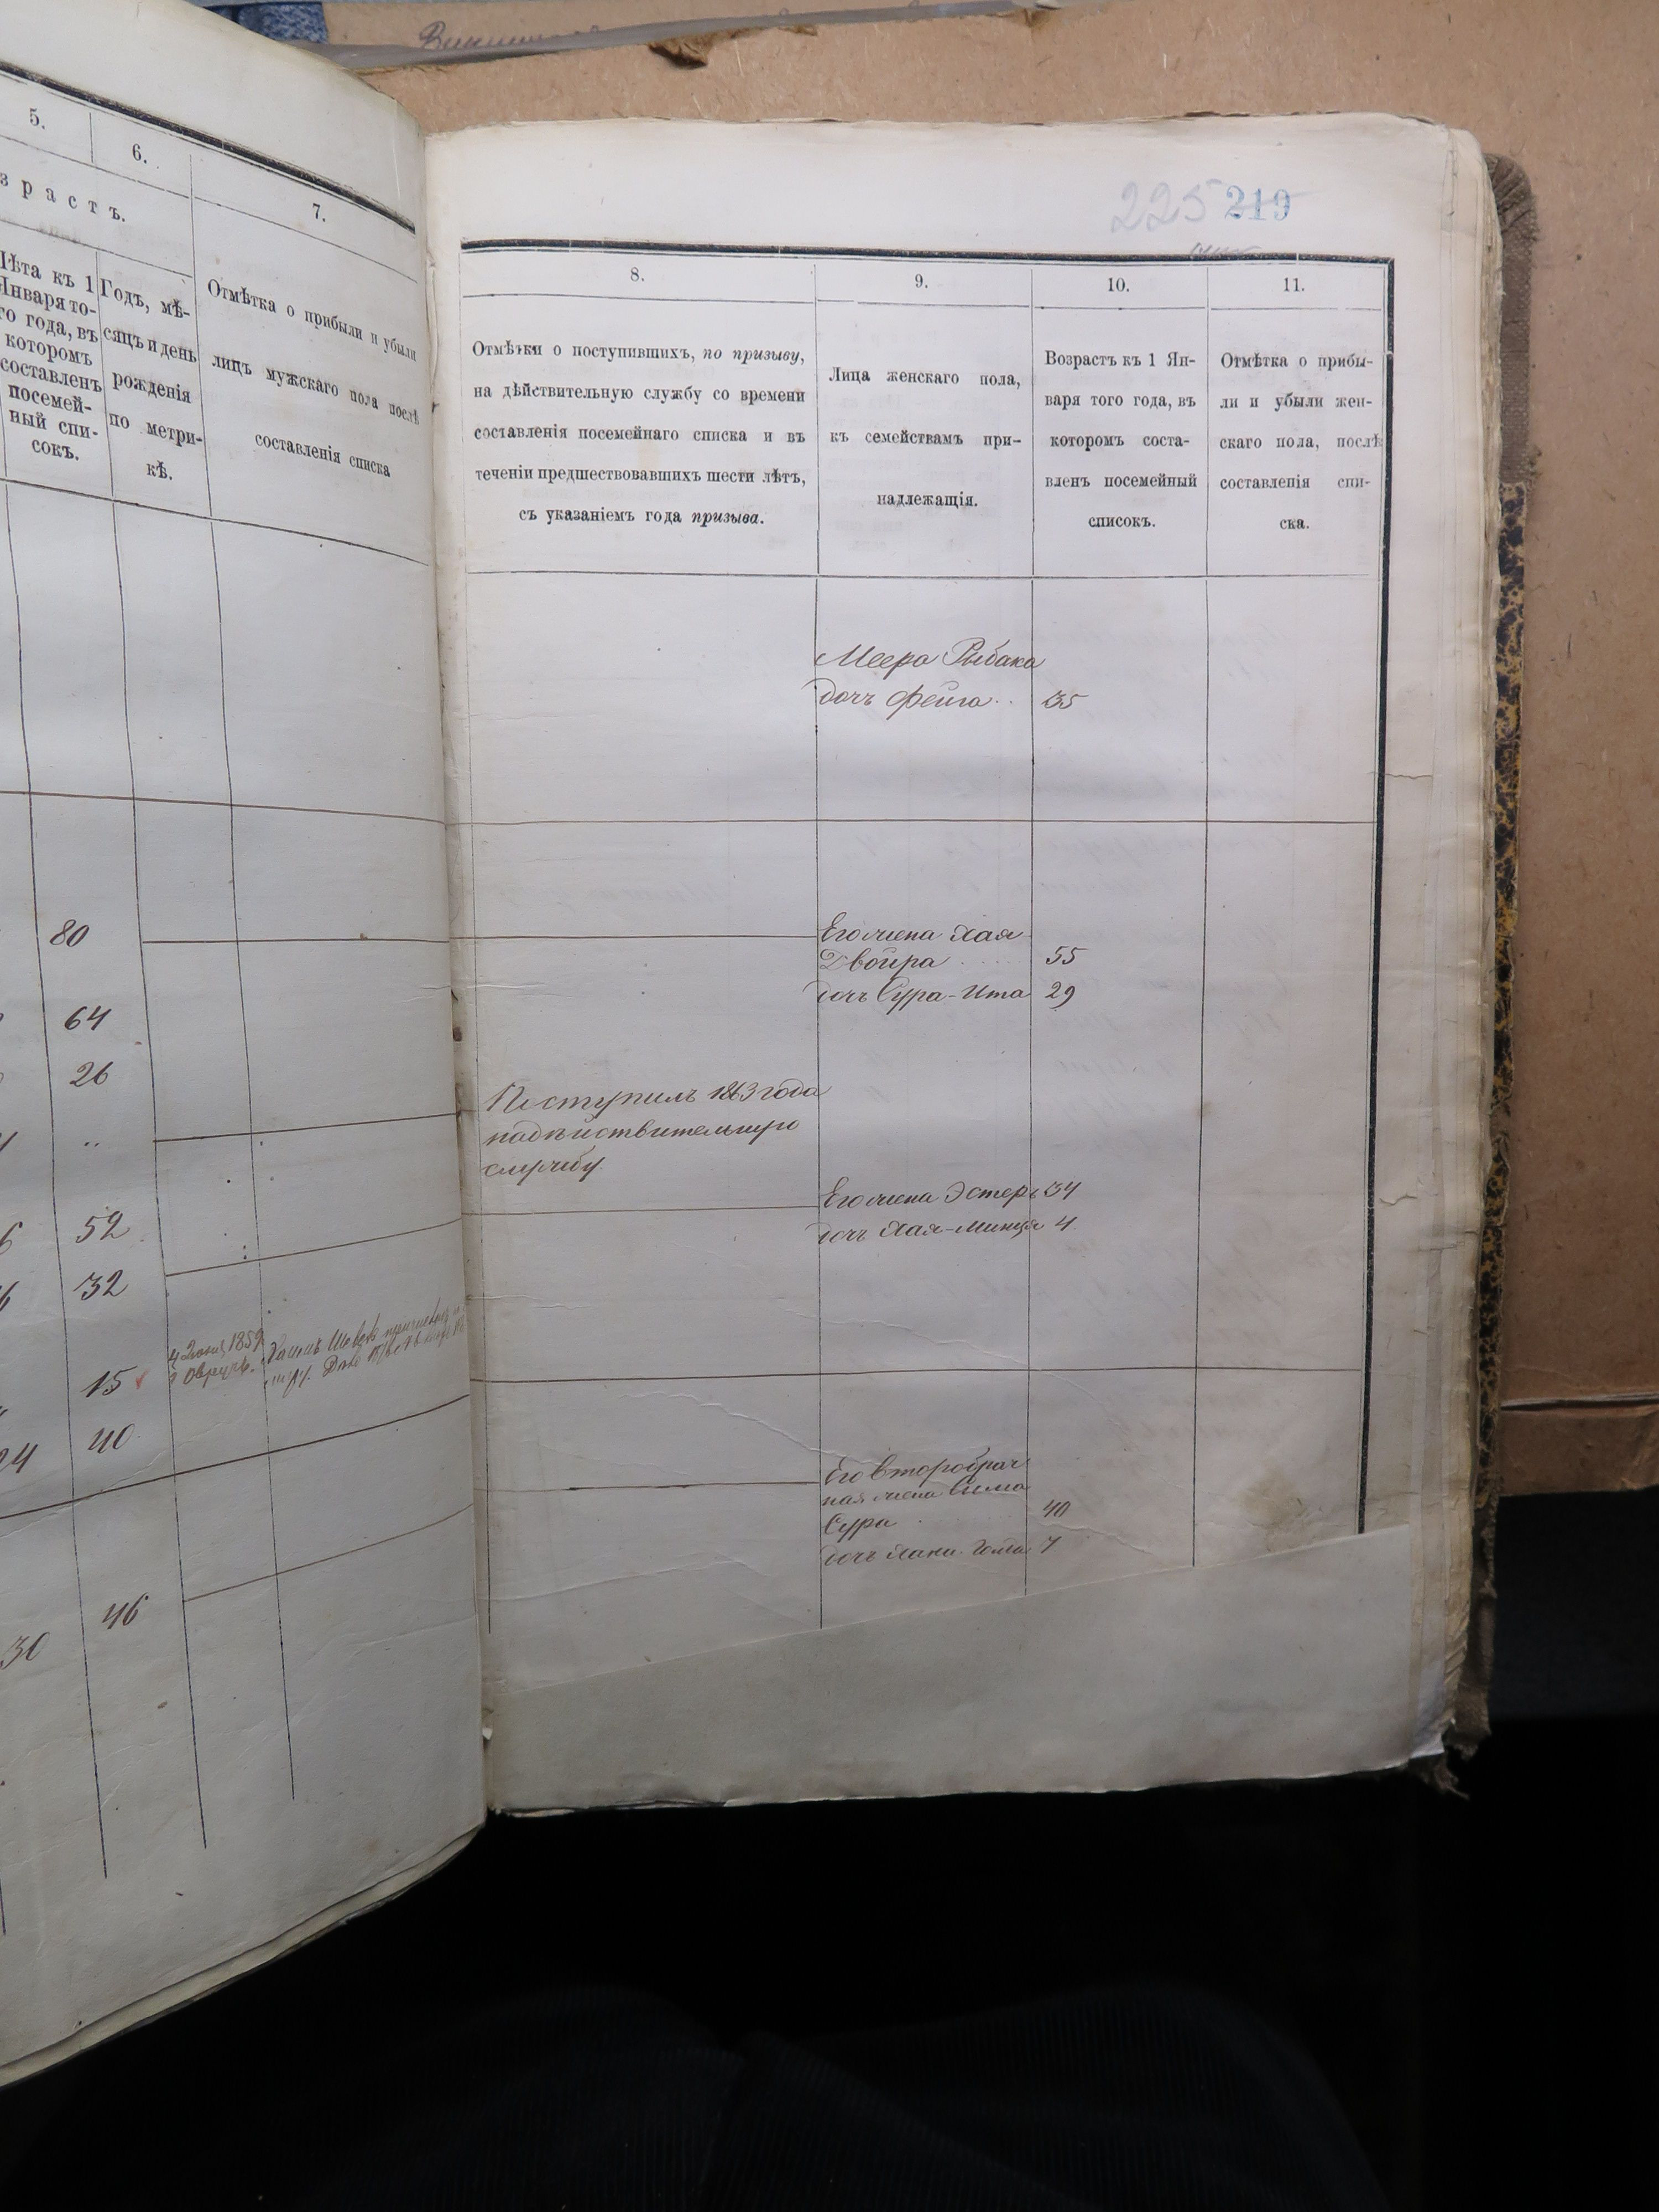 5.
6.
7.
зрастъ.
Лѣта къ 1
Января то-
го года, въ
которомъ
составленъ
посемей-
ный спи-
сокъ.
Годъ, мѣ-
сяцъ и день
рожденія
по метри-
кѣ.
Отмѣтка о прибыли и убыли
лицъ мужскаго пола послѣ
составленія списка
80
64
26
52
32
15
24 40
46
30
225 219
8.
9.
10.
11.
Отмѣтки о поступившихъ, по призыву,
на дѣйствительную службу со времени
составленія посемейнаго списка и въ
теченіи предшествовавшихъ шести лѣтъ,
съ указаніемъ года призыва.
Лица женскаго пола,
къ семействамъ при-
надлежащія.
Возрастъ къ 1 Ян-
варя того года, въ
которомъ соста-
вленъ посемейный
списокъ.
Отмѣтка о прибы-
ли и убыли жен-
скаго пола, послѣ
составленія спи-
ска.
Меера Рыбака
дочь Фейга .. 35
Его жена Хая
Двойра 55
дочь Сура-Ита 29
Поступилъ 1863 года
на дѣйствительную
службу.
Его жена Эстеръ 34
дочь Хая-Минця 4
Его второбрач
ная жена Сима
Сура 40
дочь 7